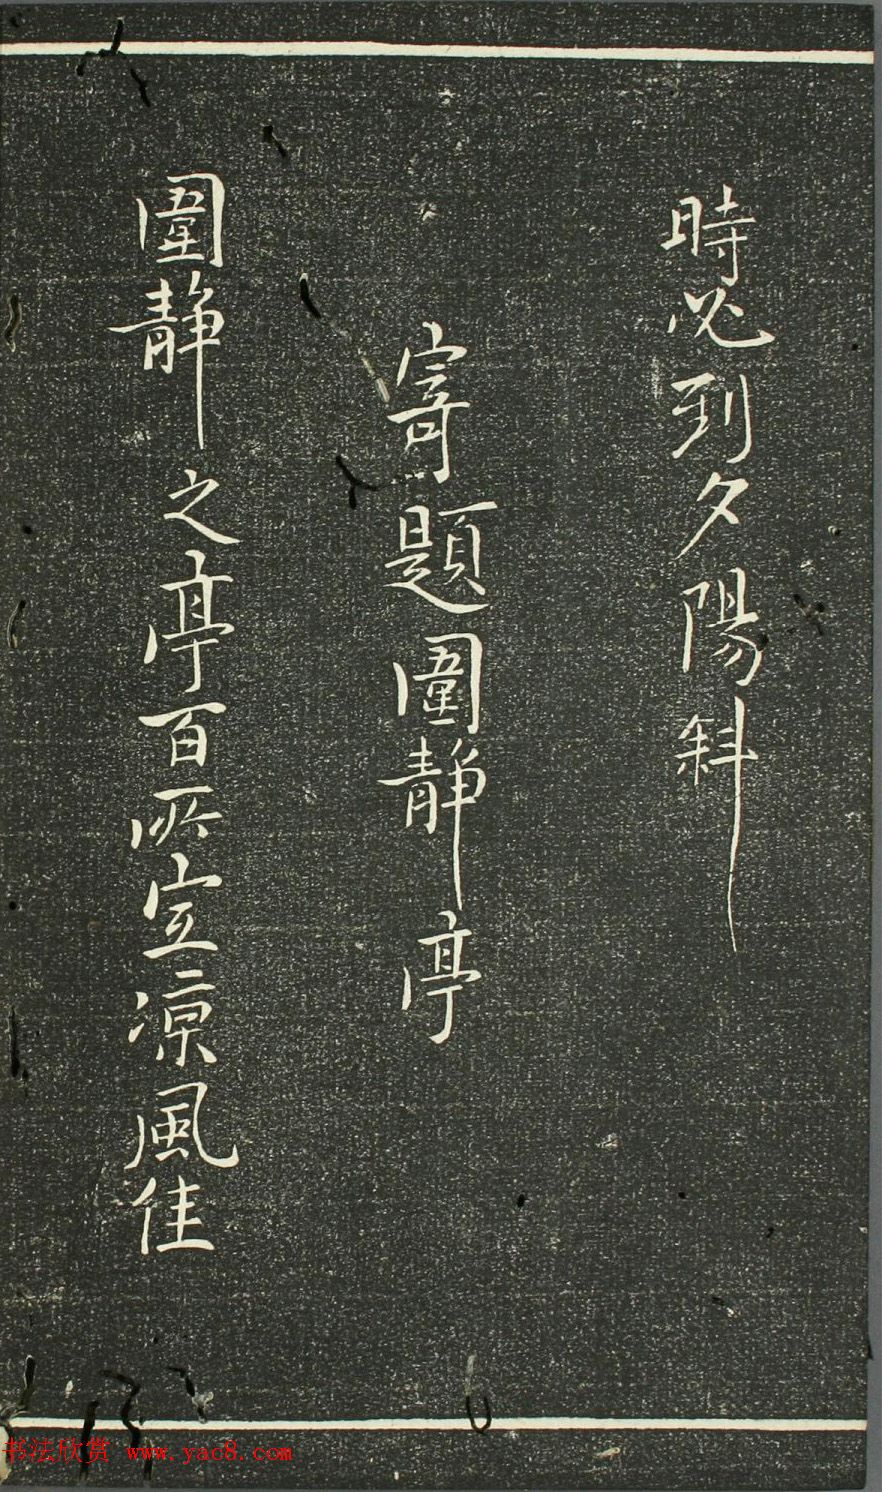 時必到夕陽斜
寄題圍靜亭
圍靜之亭百所宜涼風佳
书法欣赏 www.yac8.com